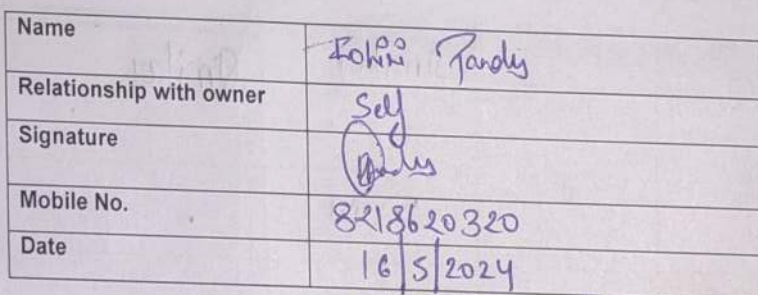 Name
Relationship with owner Self
Signature
Mobile No. 8218620320
Date 16/5/2024